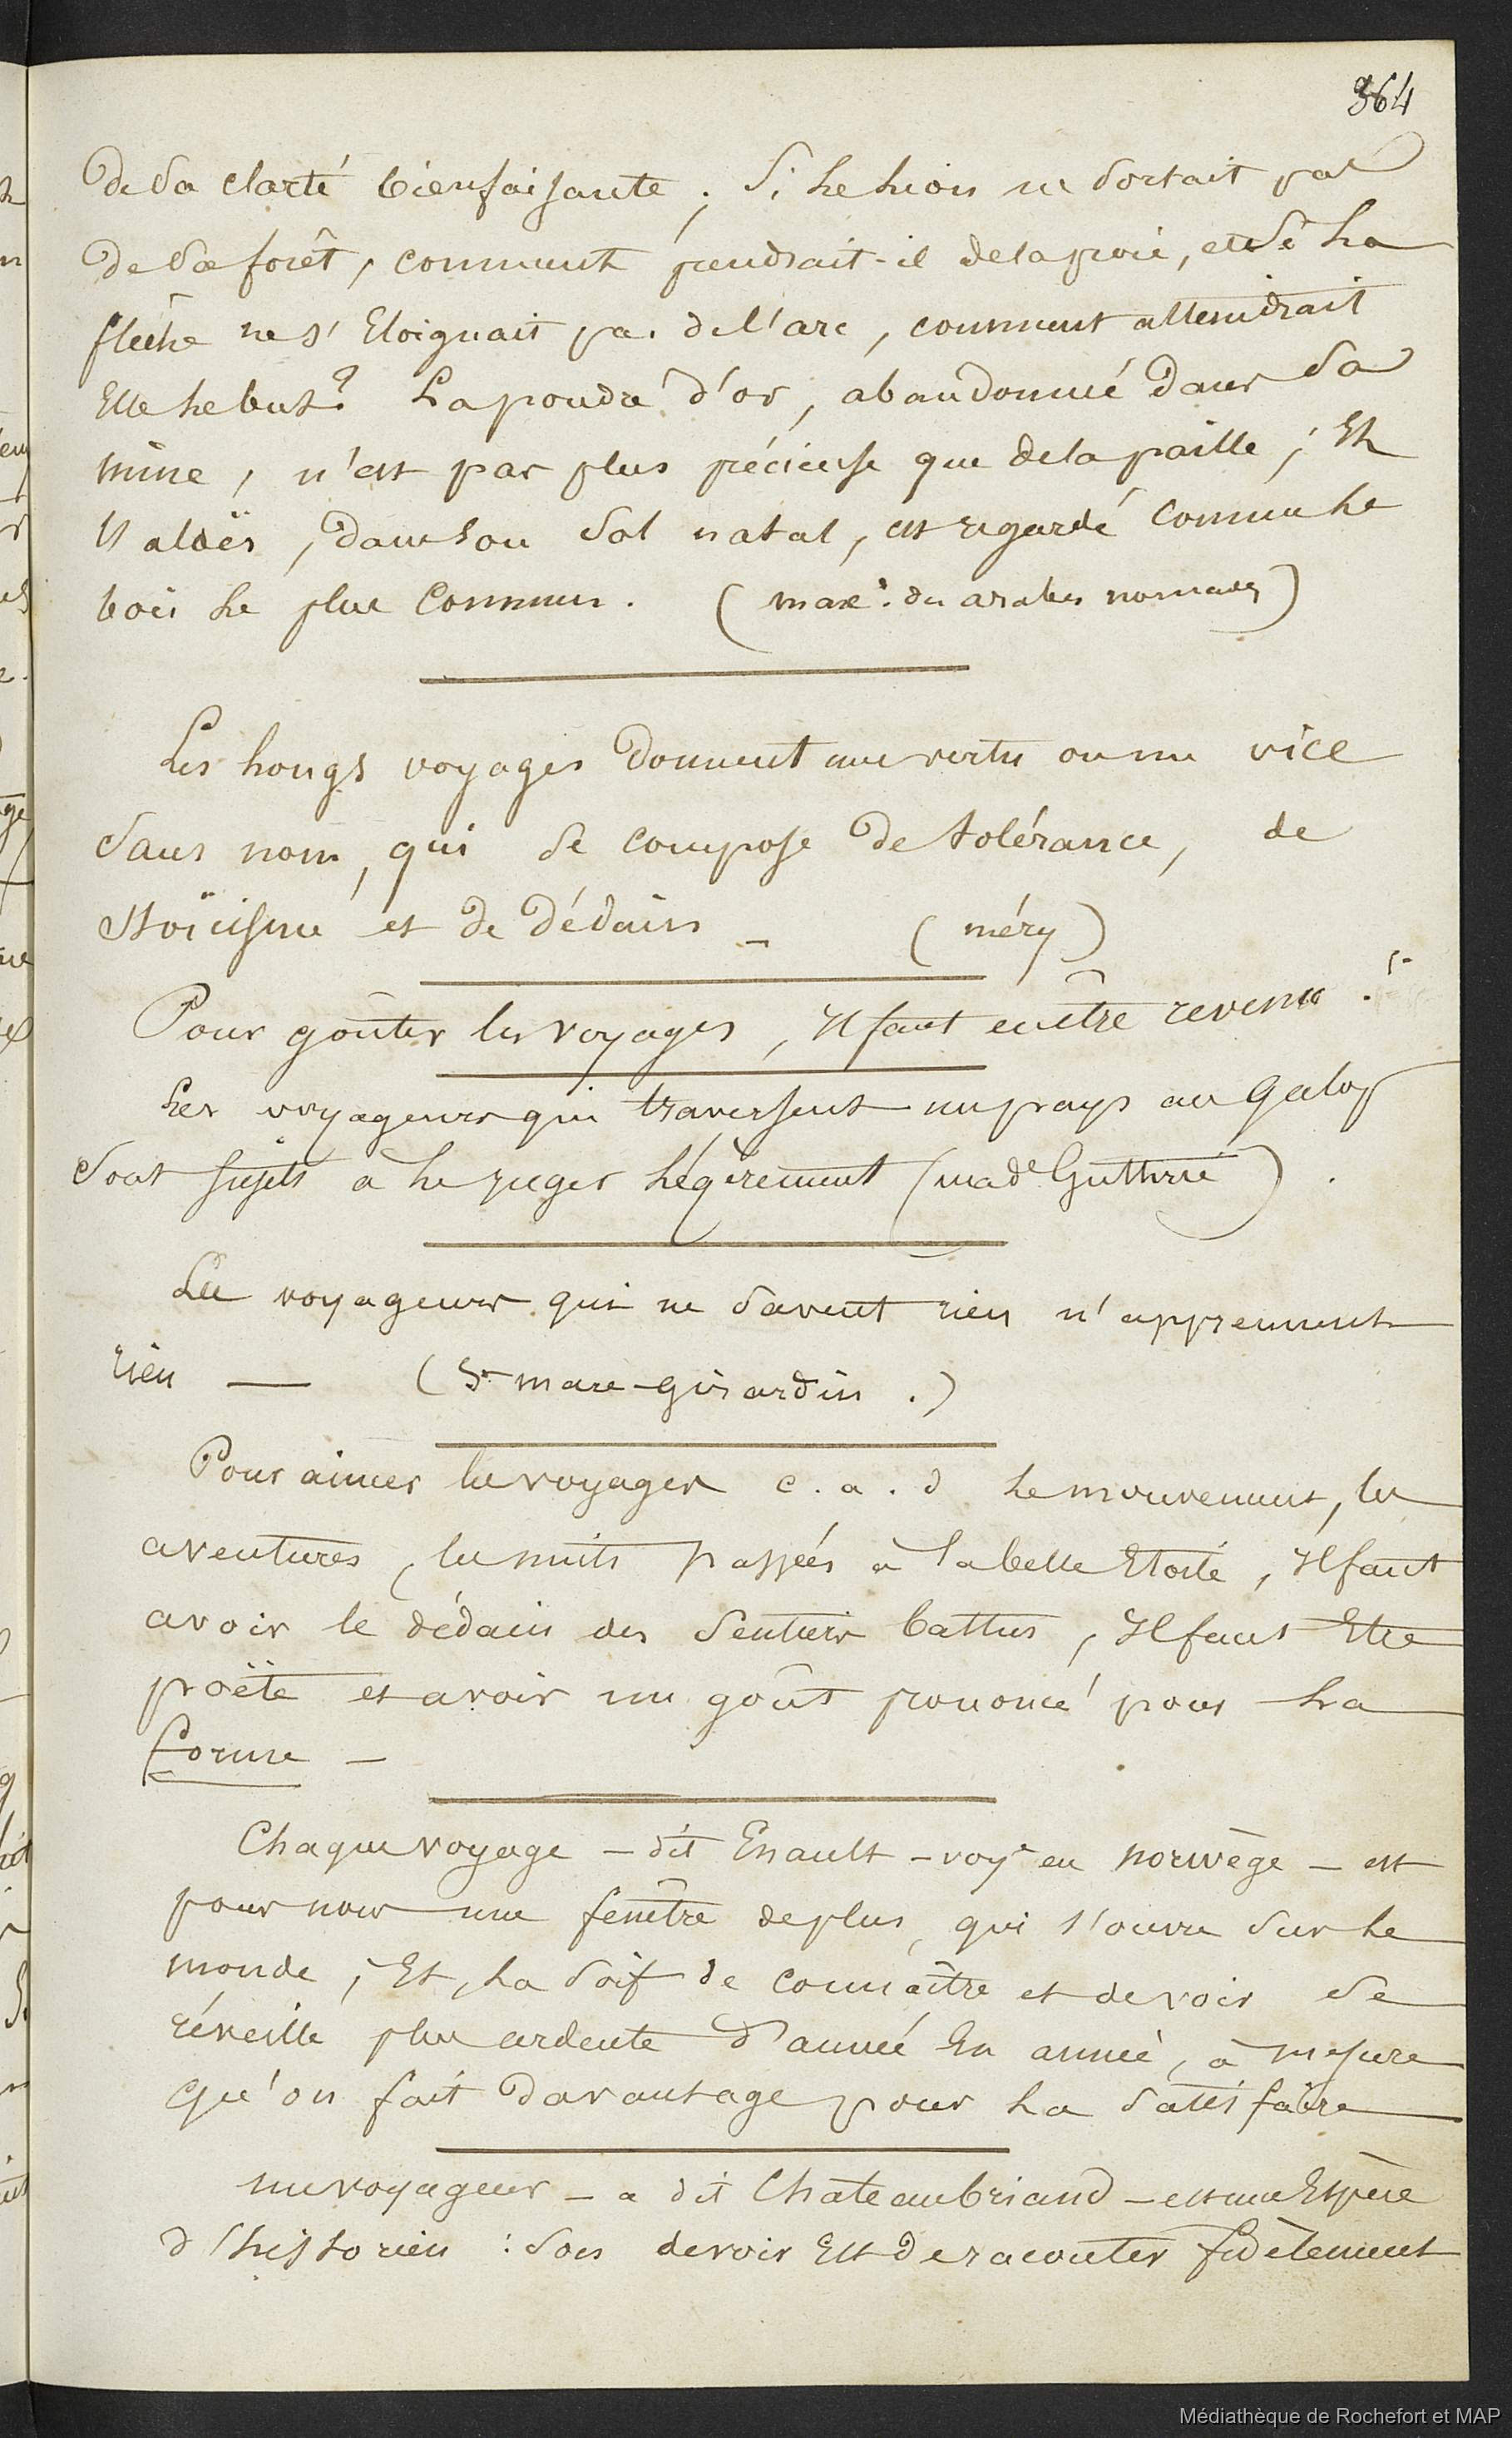 364
de sa clarté bienfaisante ; Si le lion ne sortait pas
de sa forêt, comment prendrait-il de la proie, et si la
flèche ne s'éloignait pas de l'arc, comment atteindrait
Elle le but ? La poudre d'or, abandonnée dans sa
mine, n'est pas plus précieuse que de la paille ; Et
l'aloës, dans son sol natal, est regardé comme le
bois le plus commun. (max.s des arabes nomades)
Les longs voyages donnent une vertu ou un vice
sans nom, qui se compose de tolérance, de
stoïcisme et de dédain - (méry)
Pour goûter les voyages, Il faut en être revenu.
Les voyageurs qui traversent un pays au galop
sont sujets à le juger légèrement (made Guthrie).
Les voyageurs qui ne savent rien n'apprennent
rien — (St marc-girardin.)
Pour aimer les voyages c.a.d le mouvement, les
aventures, les nuits passées à la belle Etoile, Il faut
avoir le dédain des sentiers battus, Il faut Etre
poëte et avoir un goût prononcé pour la
forme -
Chaque voyage - dit Enault - voye en norwège - est
pour nous une fenêtre de plus, qui s'ouvre sur le
monde ; Et, la soif de connaître et de voir se
réveille plus ardente d'année En année, à mesure
qu'on fait davantage pour la satisfaire
un voyageur - a dit Chateaubriand - est une Espèce
d'historien : son devoir Est de raconter fidèlement
Médiathèque de Rochefort et MAP